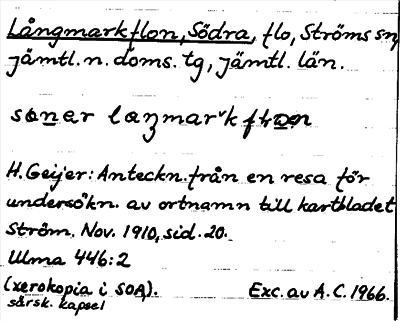 Långmarkflon, Södra, flo, Ströms sn,
jämtl. n. doms. tg, jämtl. län.
H. Geijer: Anteckn. från en resa för
undersökn. av ortnamn till kartbladet
Ström. Nov. 1910, sid. 20.
Ulma 446:2
(xerokopia i SOA). Exc. av A.C. 1966.
särsk. kapsel